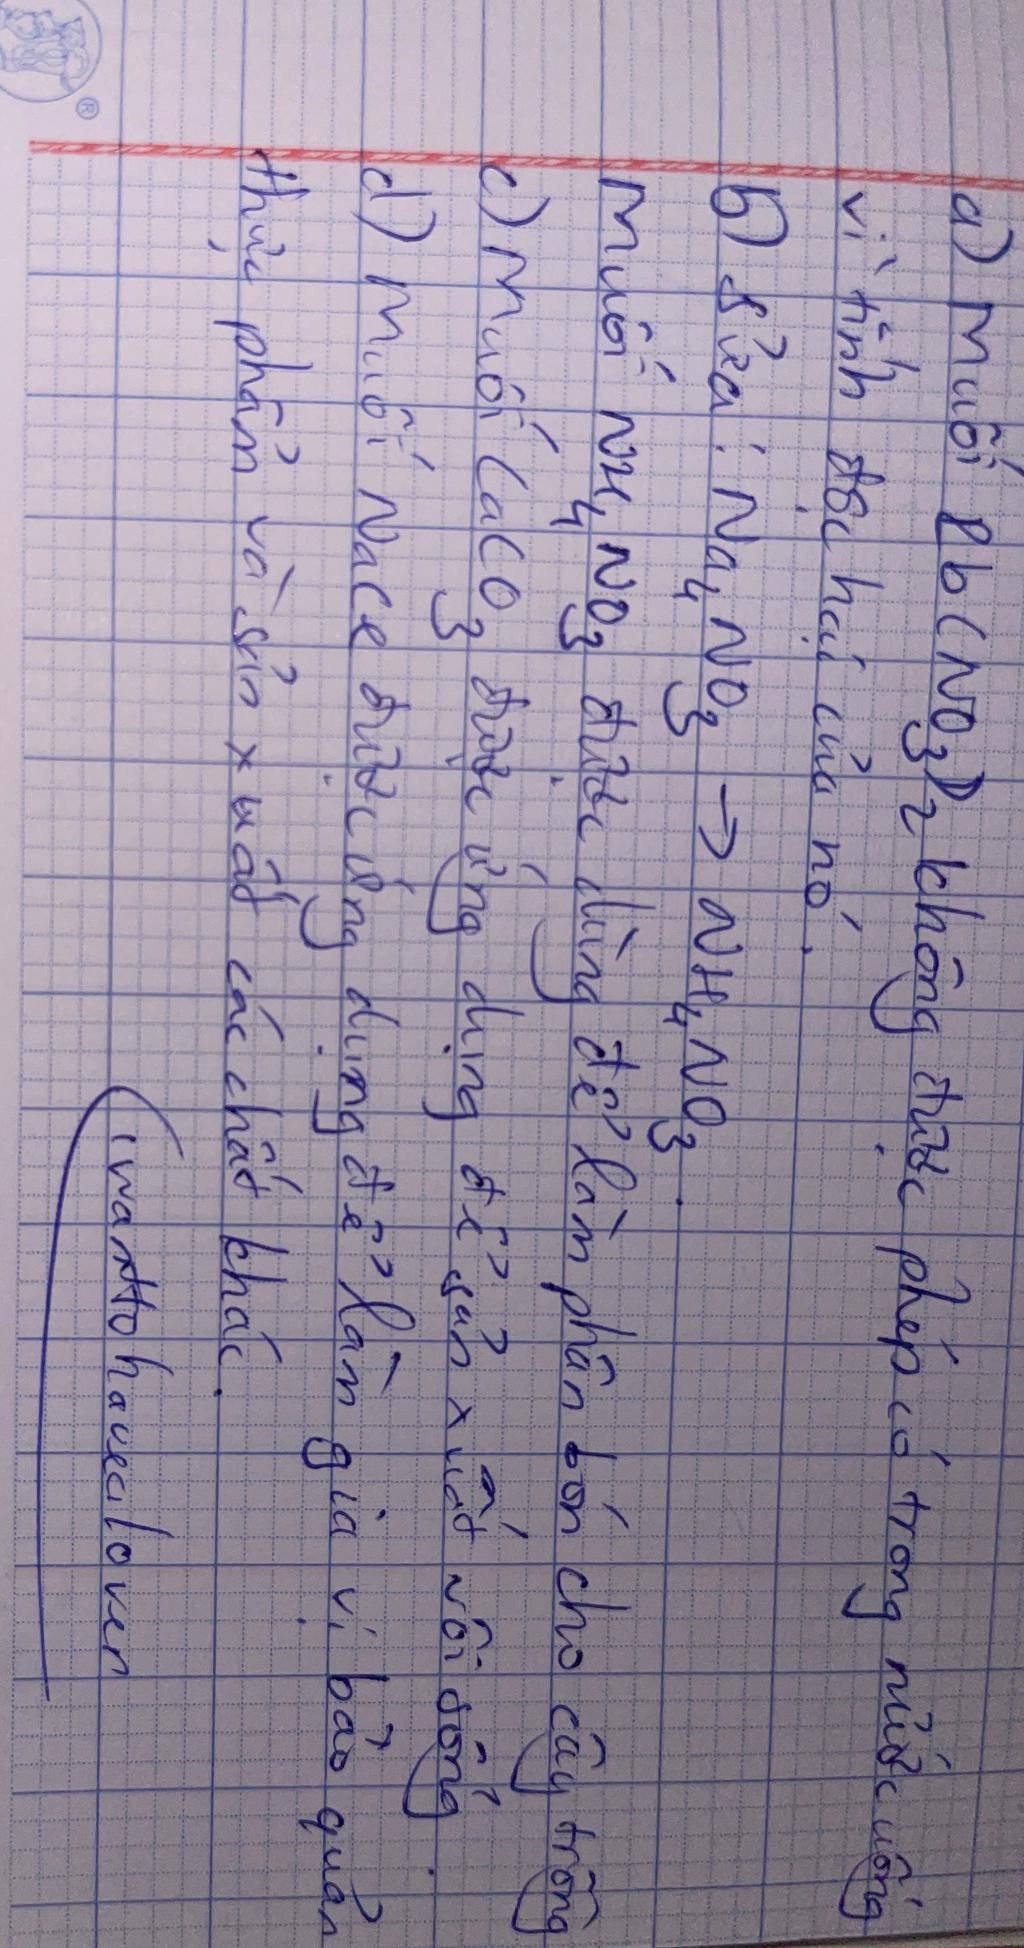 a) Muối Pb(NO3)2 không được phép có trong nước uống
vì tính độc hại của nó.
b) sửa: Na4NO3 → NH4NO3.
Muối NH4NO3 được dùng để làm phân bón cho cây trồng
c) Muối CaCO3 được ứng dụng để sản xuất vôi sống.
d) Muối NaCl được ứng dụng để làm gia vị bảo quản
thực phẩm và sản xuất các chất khác.
iwanttohavealover
®